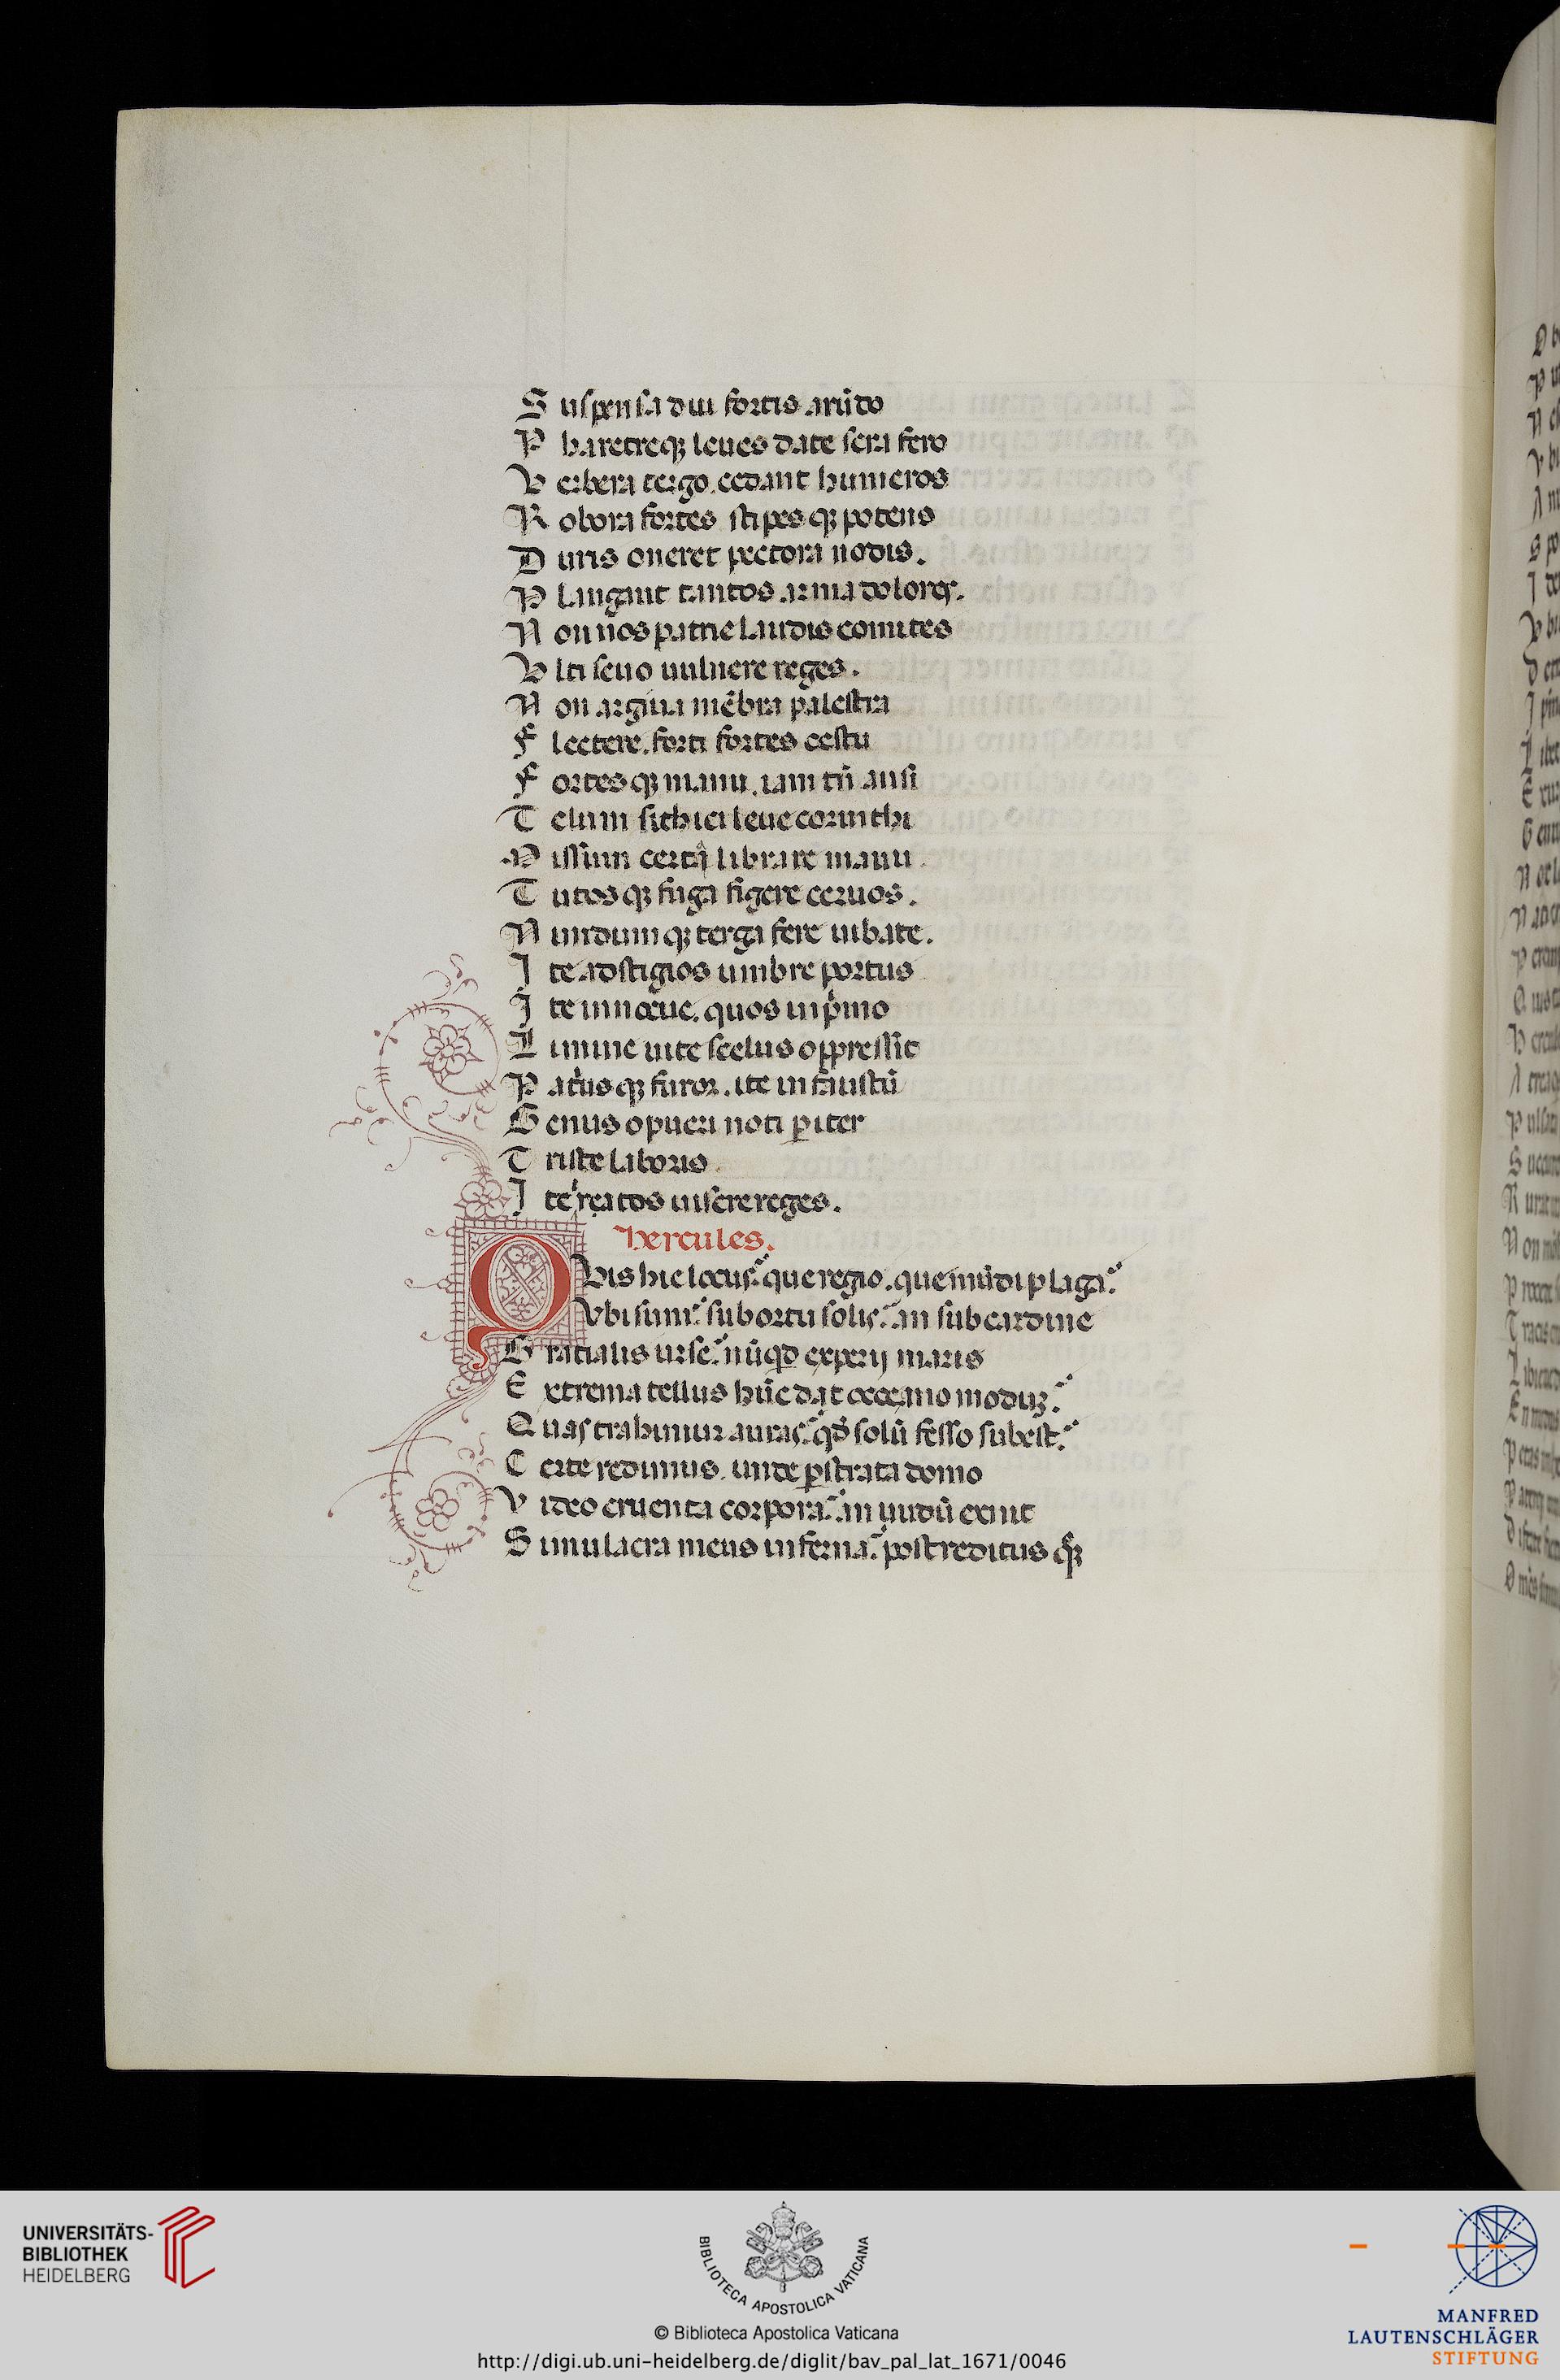 Suspensa diu fortis arūdo
Pharetreqꝫ leues date seua fero
Verbera tergo. cedant humeros
Robora fortes stipes qꝫ potens
Duris oneret pectora nodis.
Plangant tantos arma dolores.
Non uos patrie laudis comites
Vlti seuo uulnere reges.
Non argiua mēbra palestra
Flectere. forti fortes cestu
Fortes qꝫ manu. iam tn̄ ausi
Telum sithici leue corinthi
Missum certa librare manu.
Tutos qꝫ fuga figere ceruos.
Nundum qꝫ terga fere iubate.
Ite ad stigios umbre portus
Ite innocue. quos in pⁱmo
Limine uite scelus oppressit
Patⁱus qꝫ furor. ite infaustū
Genus o pueri noti ꝑiter
Triste laboris.
Ite reatos uisere reges.
hercules.
QVis hic locus? que regio. que mūdi plaga?
Vbi sum? sub ortu solis? an sub cardine
Glatialis urse? nūqd experij maris
Extrema tellus hūc dat occeano moduꝫ?
Quas trahimur auras? qd solū fesso subest?
Certe redimus. unde ꝑstrata domo
Video cruenta corpora? an nudū exuit
Simulacra mens inferna? post reditus qꝫ
UNIVERSITÄTS-
BIBLIOTHEK
HEIDELBERG
BIBLIOTECA APOSTOLICA VATICANA
© Biblioteca Apostolica Vaticana
http://digi.ub.uni-heidelberg.de/diglit/bav_pal_lat_1671/0046
MANFRED
LAUTENSCHLÄGER
STIFTUNG